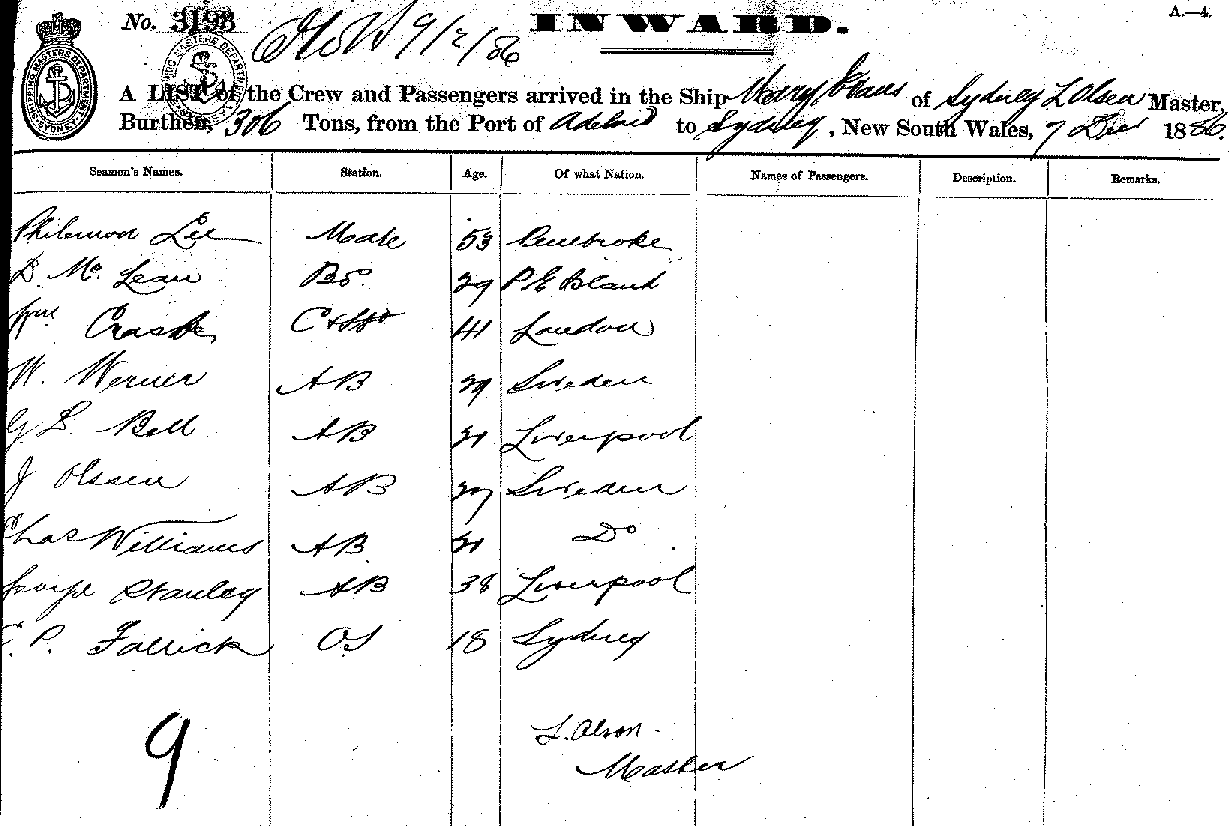 A.—4.
No. 3193 INWARD.
9/2/86
A LIST of the Crew and Passengers arrived in the Ship Mary Evans of Sydney L Olsen Master,
Burthen, 306 Tons, from the Port of Adelaid to Sydney, New South Wales, 7 Dec 1886.
Seamen's Names. Station. Age. Of what Nation. Names of Passengers. Description. Remarks.
Philemon Lee Mate 53 Pembroke
D Mc Lean Bo 29 P. E Island
Wm Craske 41 London
W. Werner AB 29 Sweden
G L Bell AB 21 Liverpool
J Olssen AB 27 Sweden
Chas Williams AB 21 Do
George Stanley AB 38 Liverpool
P. Fallick OS 18 Sydney
9
L. Olson
Master